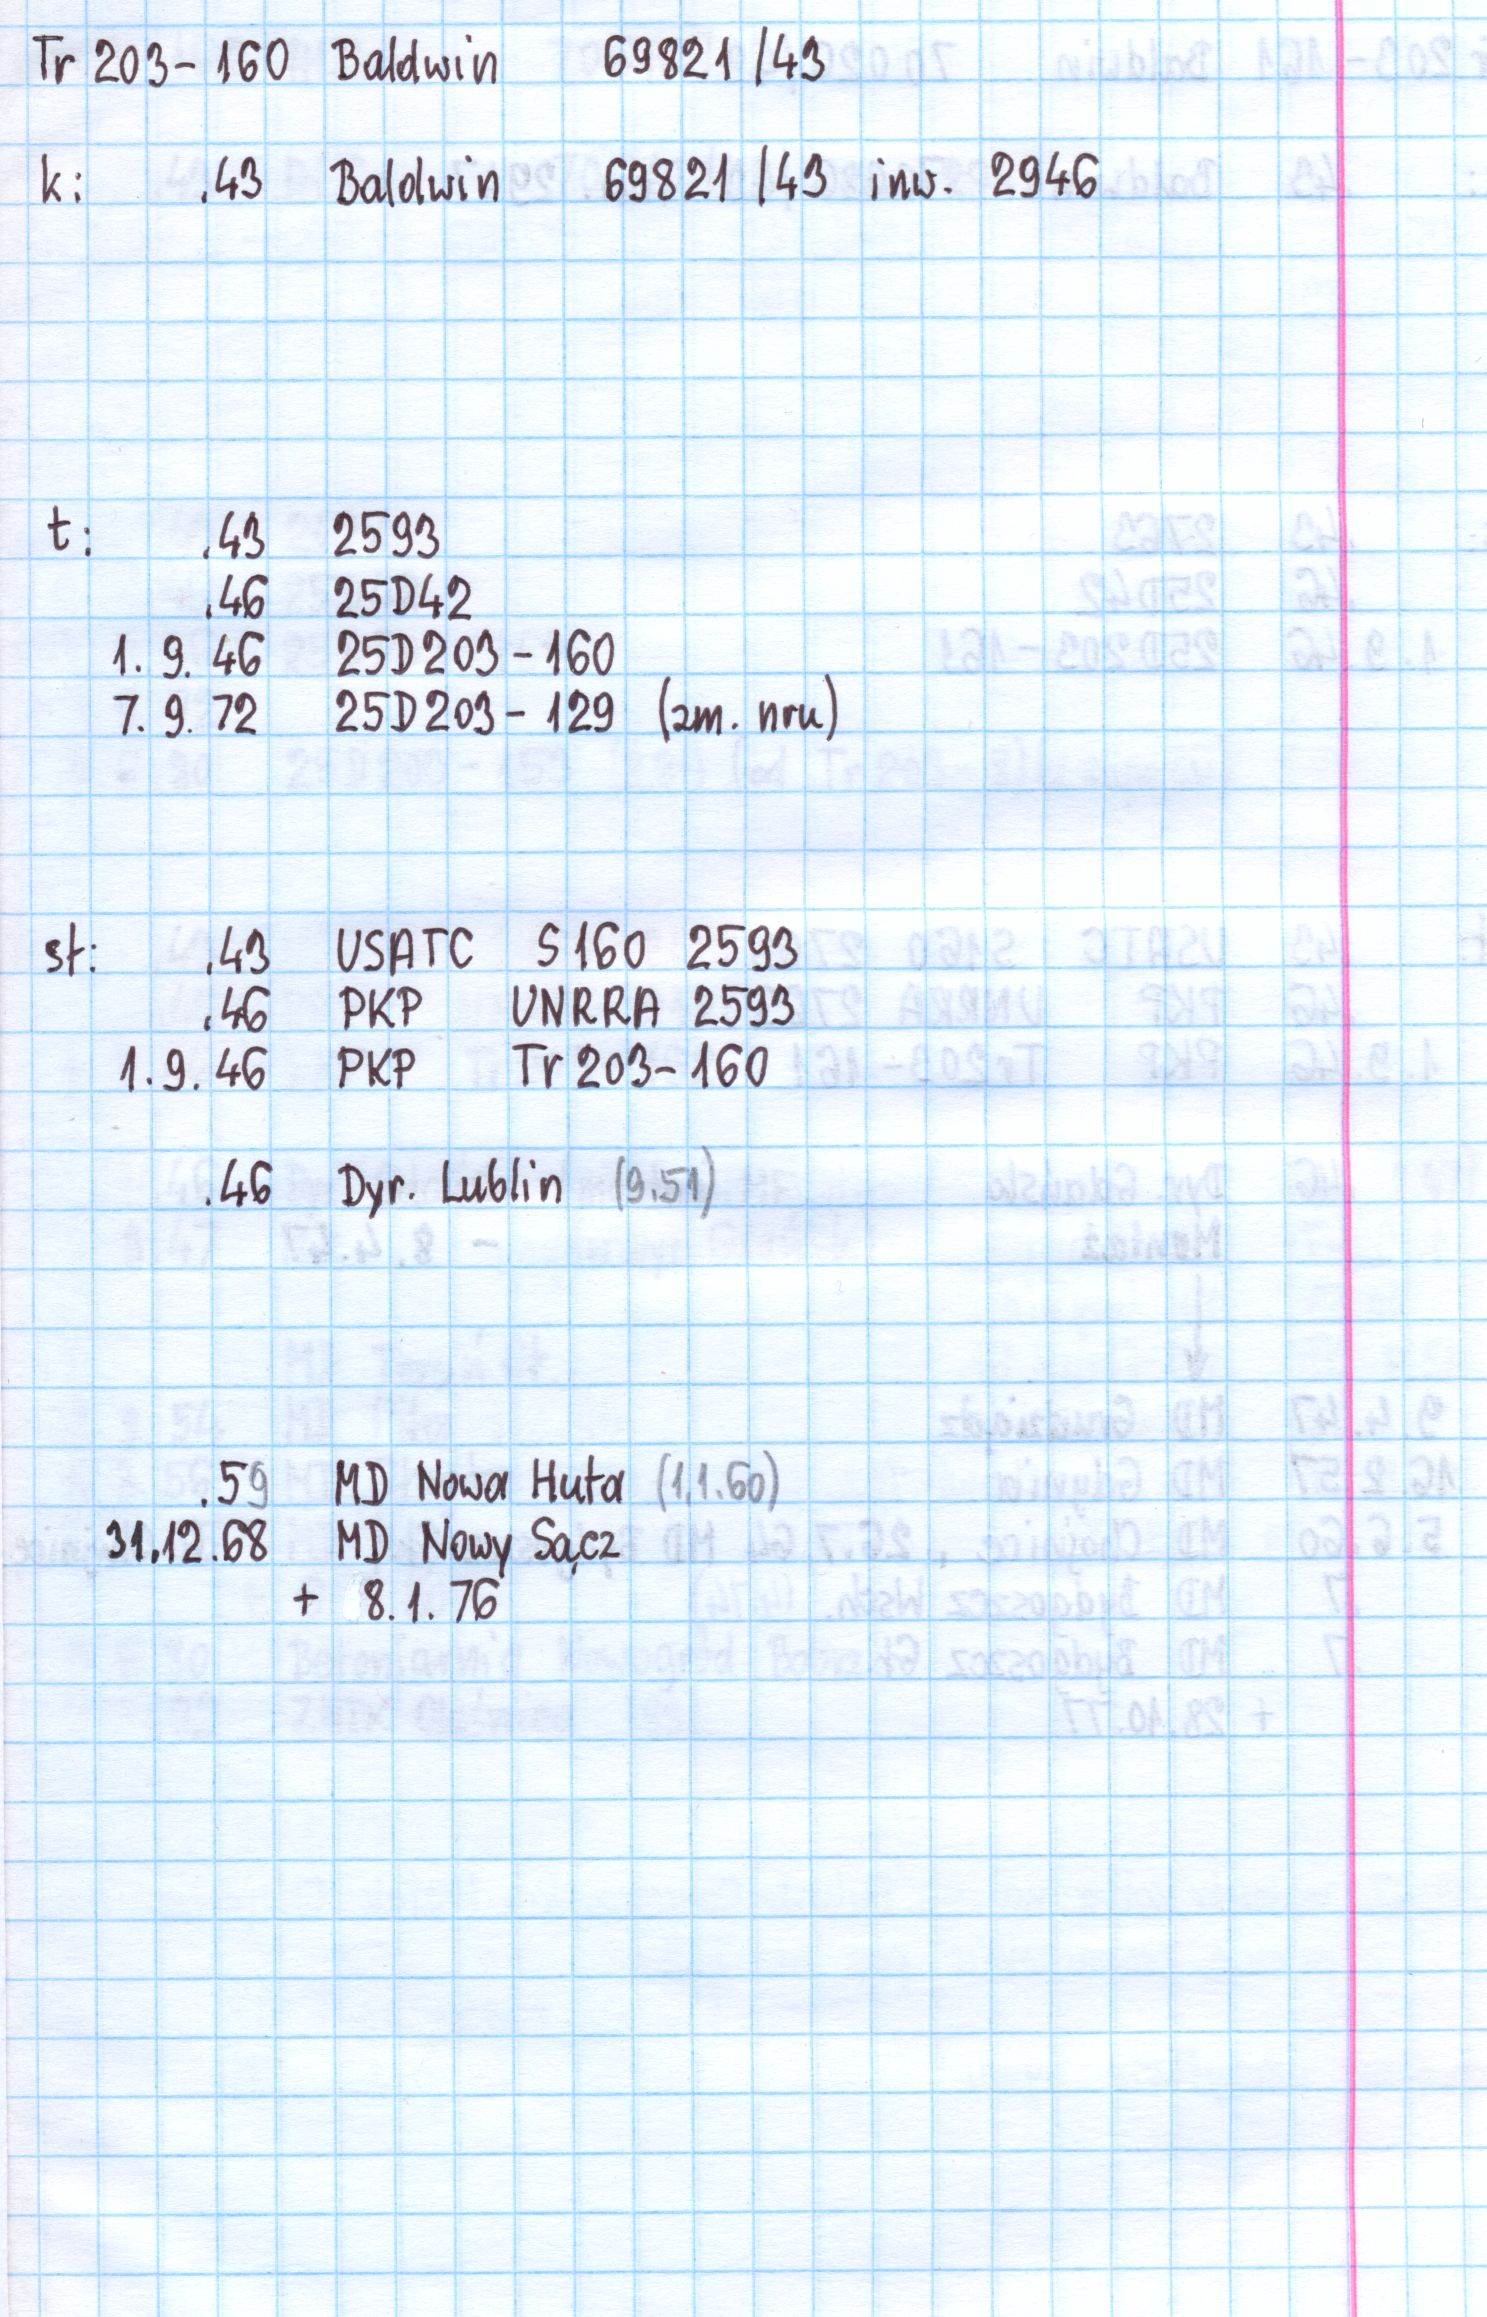 Tr 203-160 Baldwin 69821/43
k: .43 Baldwin 69821/43 inw. 2946
t: .43 2593
.46 25D42
1.9.46 25D203-160
7.9.72 25D203-129 (zm. nru)
st: .43 USATC S160 2593
.46 PKP UNRRA 2593
1.9.46 PKP Tr 203-160
.46 Dyr. Lublin (9.51)
.59 MD Nowa Huta (1.1.60)
31.12.68 MD Nowy Sącz
+ 8.1.76